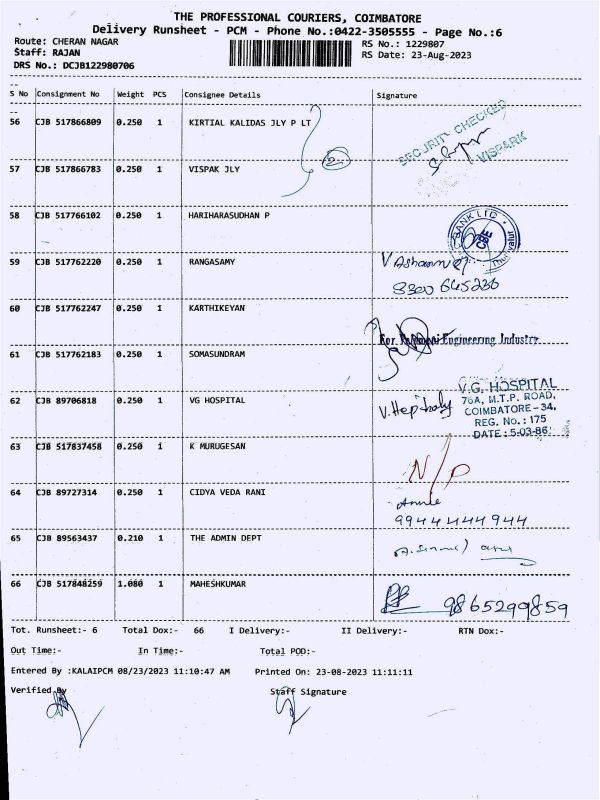 THE PROFESSIONAL COURIERS, COIMBATORE
Delivery Runsheet - PCM - Phone No.:0422-3505555 - Page No.:6
Route: CHERAN NAGAR
RS No.: 1229807
Staff: RAJAN
RS Date: 23-Aug-2023
DRS No.: DCJB122980706
S No Consignment No Weight PCS Consignee Details Signature
56 CJB 517866809 0.250 1 KIRTIAL KALIDAS JLY P LT
SECURITY CHECKED
VISPARK
2
57 CJB 517866783 0.250 1 VISPAK JLY
58 CJB 517766102 0.250 1 HARIHARASUDHAN P
BANK LTD
CBE
59 CJB 517762220 0.250 1 RANGASAMY
60 CJB 517762247 0.250 1 KARTHIKEYAN
For Engineering Industry
61 CJB 517762183 0.250 1 SOMASUNDRAM
62 CJB 89706818 0.250 1 VG HOSPITAL
V.G. HOSPITAL
76A, M.T.P. ROAD,
COIMBATORE-34.
REG. No.: 175
DATE : 5-03-86
63 CJB 517837458 0.250 1 K MURUGESAN
N/P
64 CJB 89727314 0.250 1 CIDYA VEDA RANI
9944444944
65 CJB 89563437 0.210 1 THE ADMIN DEPT
66 CJB 517848259 1.080 1 MAHESHKUMAR
9865299859
Tot. Runsheet:- 6 Total Dox:- 66 I Delivery:- II Delivery:- RTN Dox:-
Out Time:- In Time:- Total POD:-
Entered By :KALAIPCM 08/23/2023 11:10:47 AM Printed On: 23-08-2023 11:11:11
Verified By Staff Signature